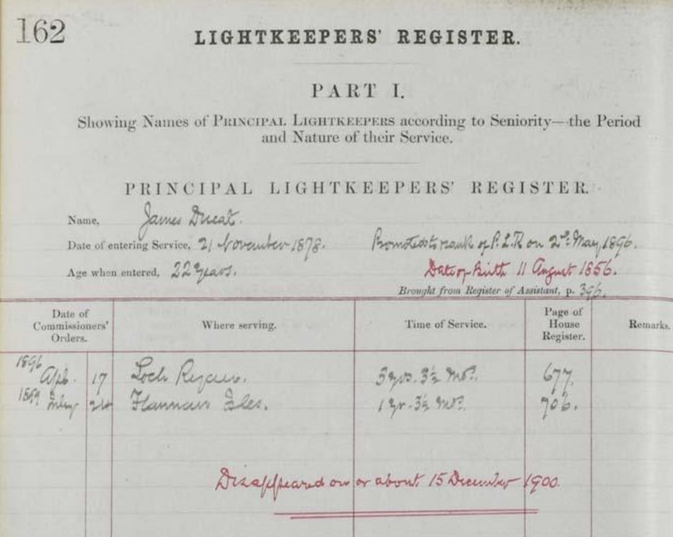 162
LIGHTKEEPERS' REGISTER.
PART I.
Showing Names of PRINCIPAL LIGHTKEEPERS according to Seniority—the Period
and Nature of their Service.
PRINCIPAL LIGHTKEEPERS' REGISTER.
Name, James Ducat.
Date of entering Service, 21 November 1878. Promoted to rank of P.L.K on 2nd May, 1896.
Age when entered, 22 years. Date of Birth 11 August 1856.
Brought from Register of Assistant, p. 396.
Date of Commissioners' Orders. Where serving. Time of Service. Page of House Register. Remarks.
1896 Apl. 17 Loch Ryan. 3 yrs. 3½ Mos. 677.
1899 24 Flannan Isles. 1 yr. 3½ Mos. 706.
Disappeared on or about 15 December 1900.